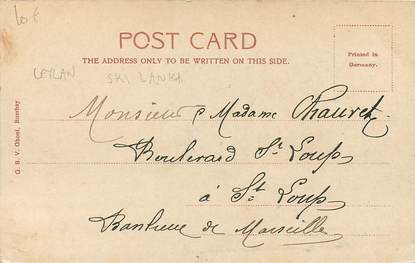 lot
POST CARD
THE ADDRESS ONLY TO BE WRITTEN ON THIS SIDE.
Printed in
Germany.
CEYLAN
SRI LANKA
G. B. V. Ghoni, Bombay
Monsieur & Madame Chauvet
Boulevard St Loup
à St Loup
Banlieue de Marseille